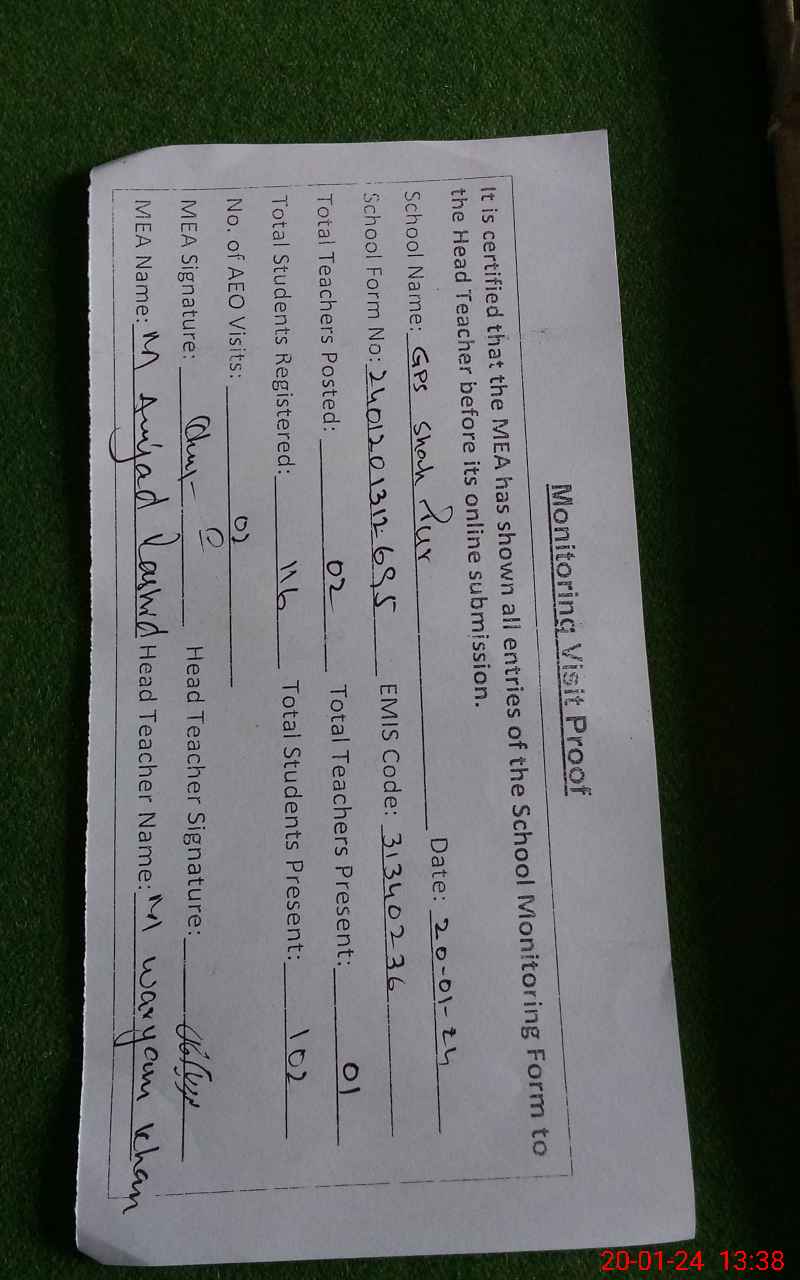 Monitoring Visit Proof
It is certified that the MEA has shown all entries of the School Monitoring Form to
the Head Teacher before its online submission.
School Name: GPS Shah Pur Date: 20-01-24
School Form No: EMIS Code: 31340236
Total Teachers Posted: 02 Total Teachers Present: 01
Total Students Registered: 116 Total Students Present: 102
No. of AEO Visits: 02
MEA Signature: Head Teacher Signature:
MEA Name: M Amjad Rashid Head Teacher Name: M waryam Khan
20-01-24 13:38